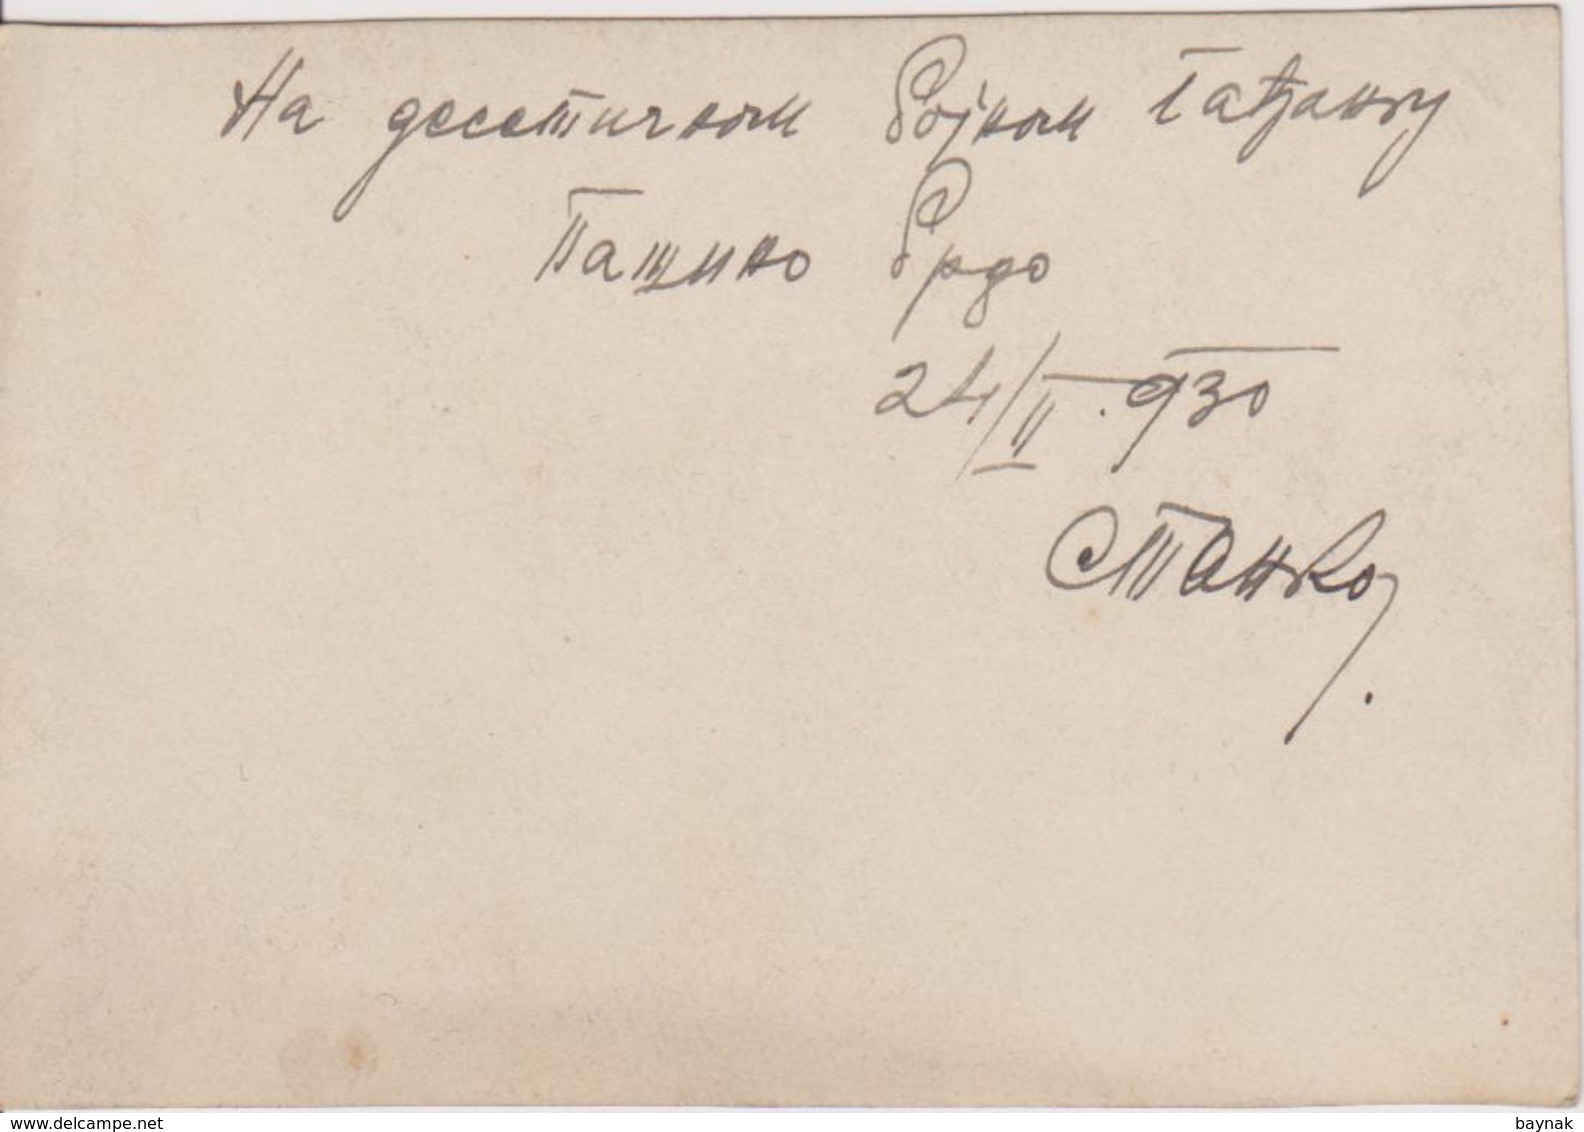 На десетичном бојном гађању
Пашино Брдо
24/II. 930
Станко,
www.delcampe.net
baynak